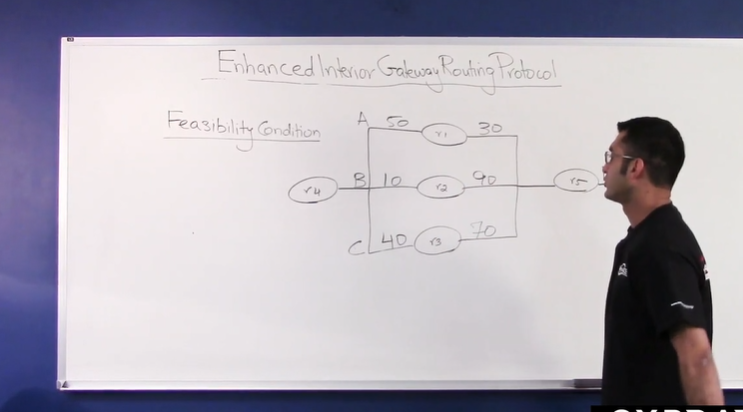 Enhanced Interior Gateway Routing Protocol
Feasibility Condition
A 50 r1 30
r4 B 10 r2 90 r5
C 40 r3 70